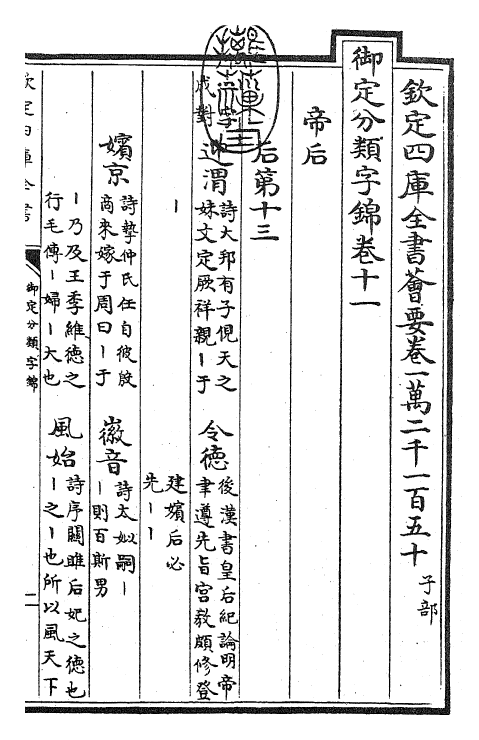 欽定四庫全書薈要卷一萬二千一百五十 子部
御定分類字錦卷十一
帝后
后第十三
成對
迎渭
詩大邦有子俔天之
妹文定厥祥親丨于
丨
令德
後漢書皇后紀論明帝
聿遵先旨宮教頗修登
建嬪后必
先丨丨
嬪京
詩摯仲氏任自彼殷
商來嫁于周曰丨于
丨乃及王季維德之
行毛傳丨婦丨大也
徽音
詩太姒嗣丨
丨則百斯男
風始
詩序關雎后妃之德也
丨之丨也所以風天下
欽定四庫全書
御定分類字錦